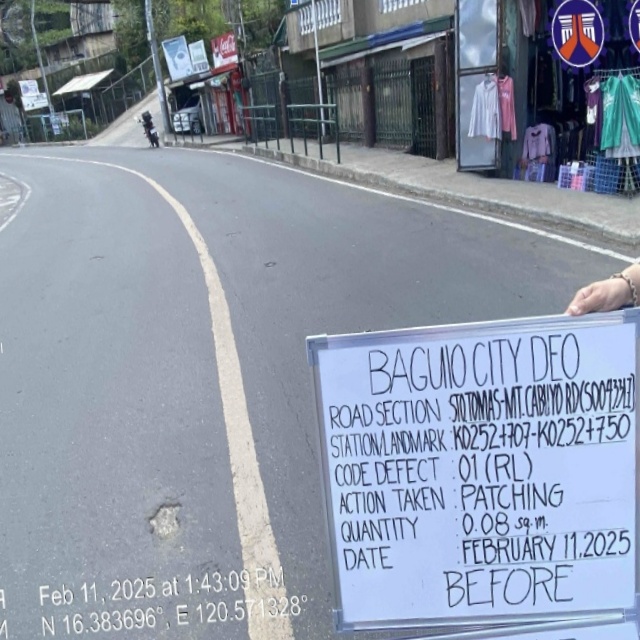 Coca-Cola
BAGUIO CITY DEO
ROAD SECTION STO.TOMAS-MT.CABUYO RD(S00434LZ)
STATION/LANDMARK : K0252+707-K0252+750
CODE DEFECT : 01 (RL)
ACTION TAKEN : PATCHING
QUANTITY : 0.08 sq.m.
DATE : FEBRUARY 11,2025
BEFORE
Feb 11, 2025 at 1:43:09 PM
N 16.383696°, E 120.571328°